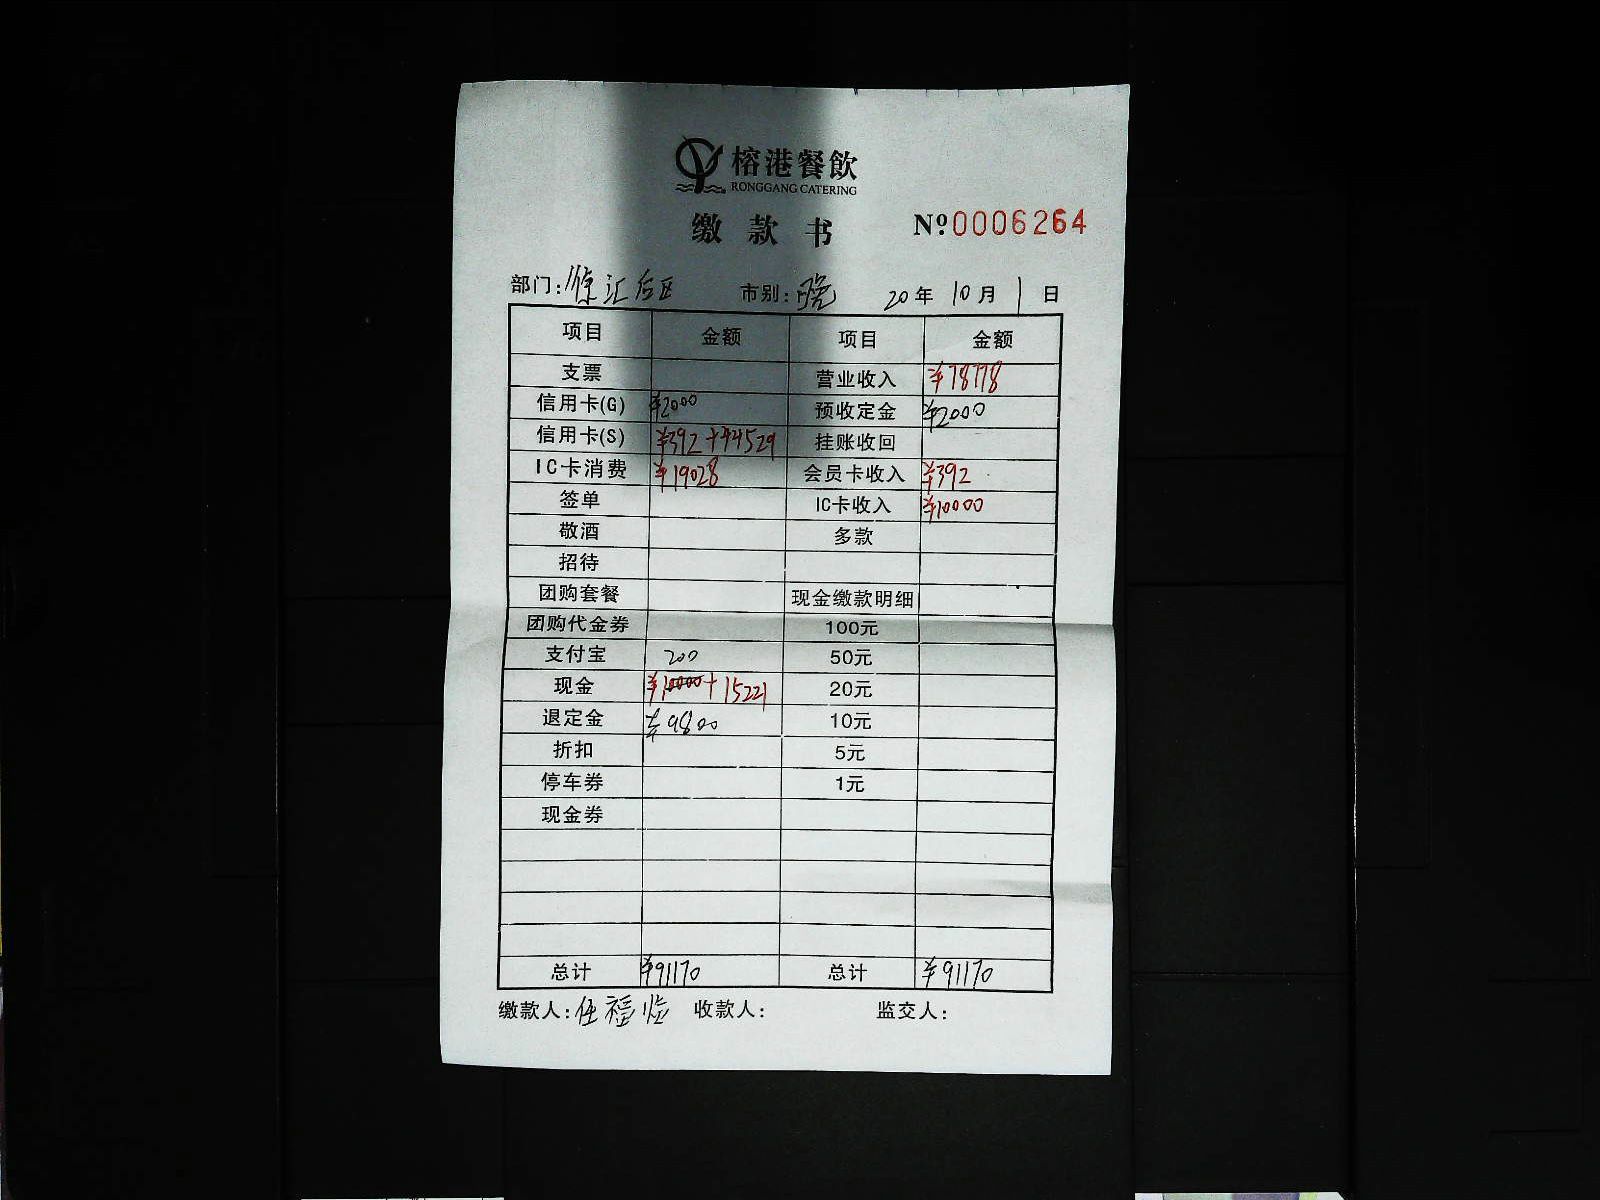 榕港餐飲
RONGGANG CATERING
缴款书 Nº 0006264
部门: 汇后区 市别: 晚 20年 10月 1日
项目 金额 项目 金额
支票 营业收入 ¥78778
信用卡(G) ¥2000 预收定金 ¥2000
信用卡(S) ¥392+44529 挂账收回
IC卡消费 ¥19028 会员卡收入 ¥392
签单 IC卡收入 ¥10000
敬酒 多款
招待
团购套餐 现金缴款明细
团购代金券 100元
支付宝 200 50元
现金 ¥10000+15221 20元
退定金 ¥9800 10元
折扣 5元
停车券 1元
现金券
总计 ¥91170 总计 ¥91170
缴款人: 任福临 收款人: 监交人: